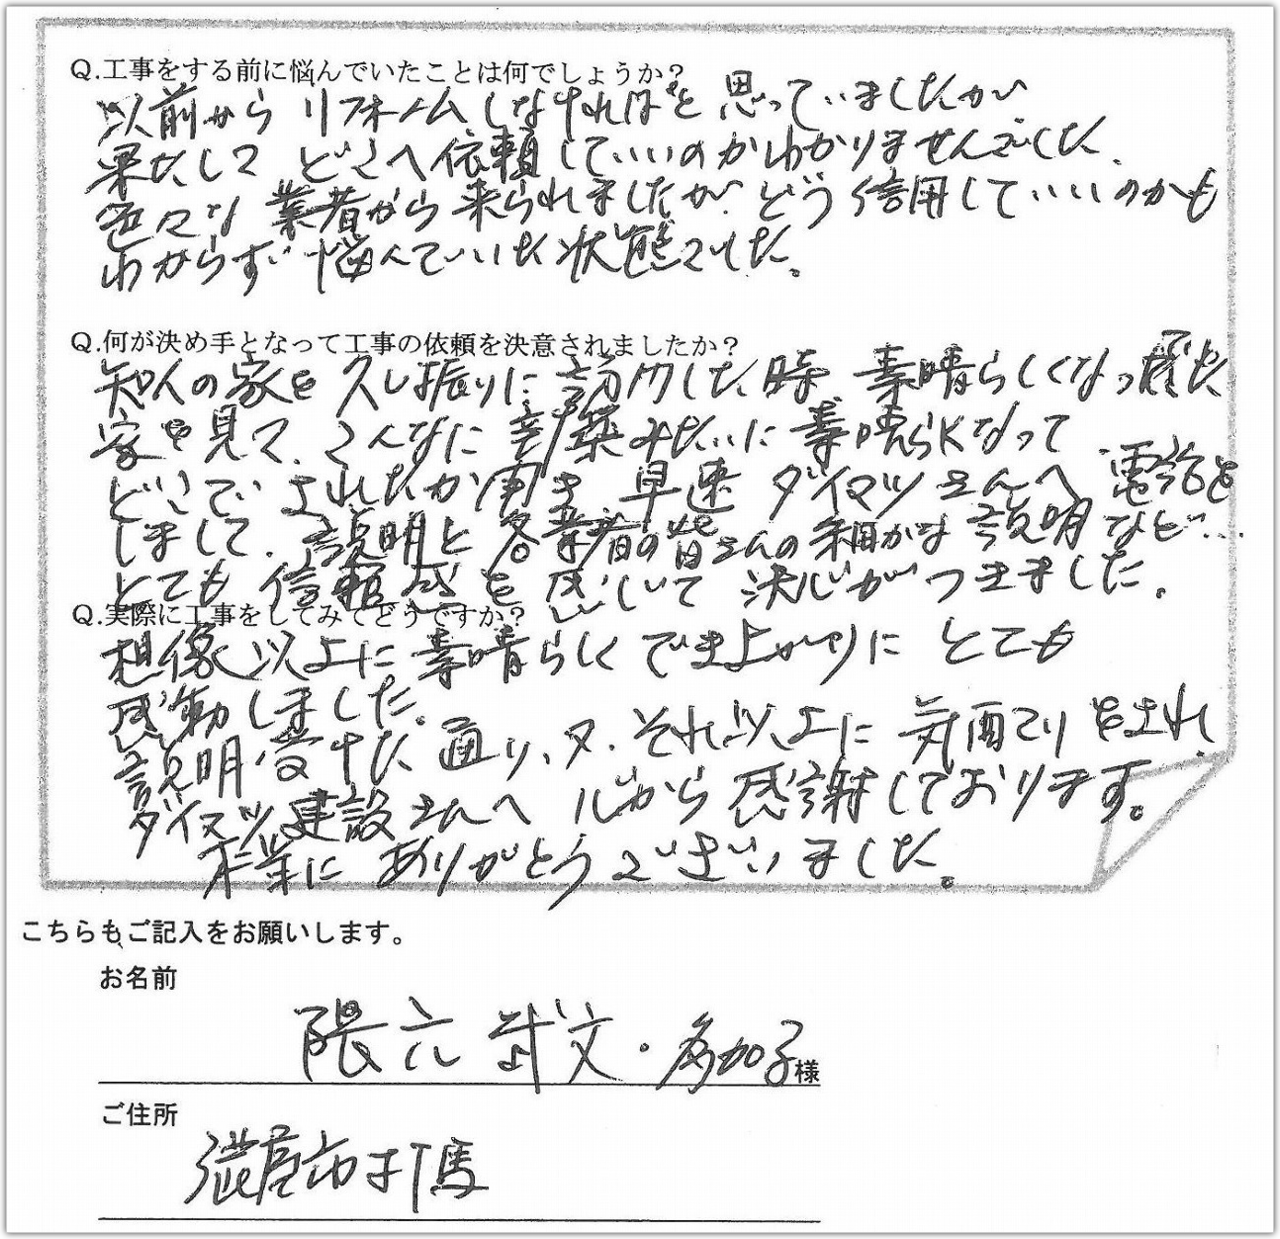 Q.工事をする前に悩んでいたことは何でしょうか?
以前から リフォームしなければと 思っていましたが
果たして どこへ依頼していいのかわかりませんでした、
色々な 業者から 来られましたが、どう 信用していいのかも
わからず 悩んでいた状態でした。
Q.何が決め手となって工事の依頼を決意されましたか?
知人の家を 久し振りに 訪門した時 素晴らしくなった
家を見て、こんなに 新築みたいに 素晴らしくなって
どこで されたか聞き 早速 ダイマツさんへ 電話を
しまして、説明と 各業者の皆さんの細かな 説明など…
とても 信頼感を 感じて 決心がつきました。
Q.実際に工事をしてみてどうですか?
想像以上に 素晴らしく でき上がりに とても
感動しました。
説明受けた 通り、又、それ以上に 気配り をされ
ダイマツ建設さんへ 心から 感謝しております。
本当に ありがとうございました。
こちらもご記入をお願いします。
お名前
隈 武文・多加子様
ご住所